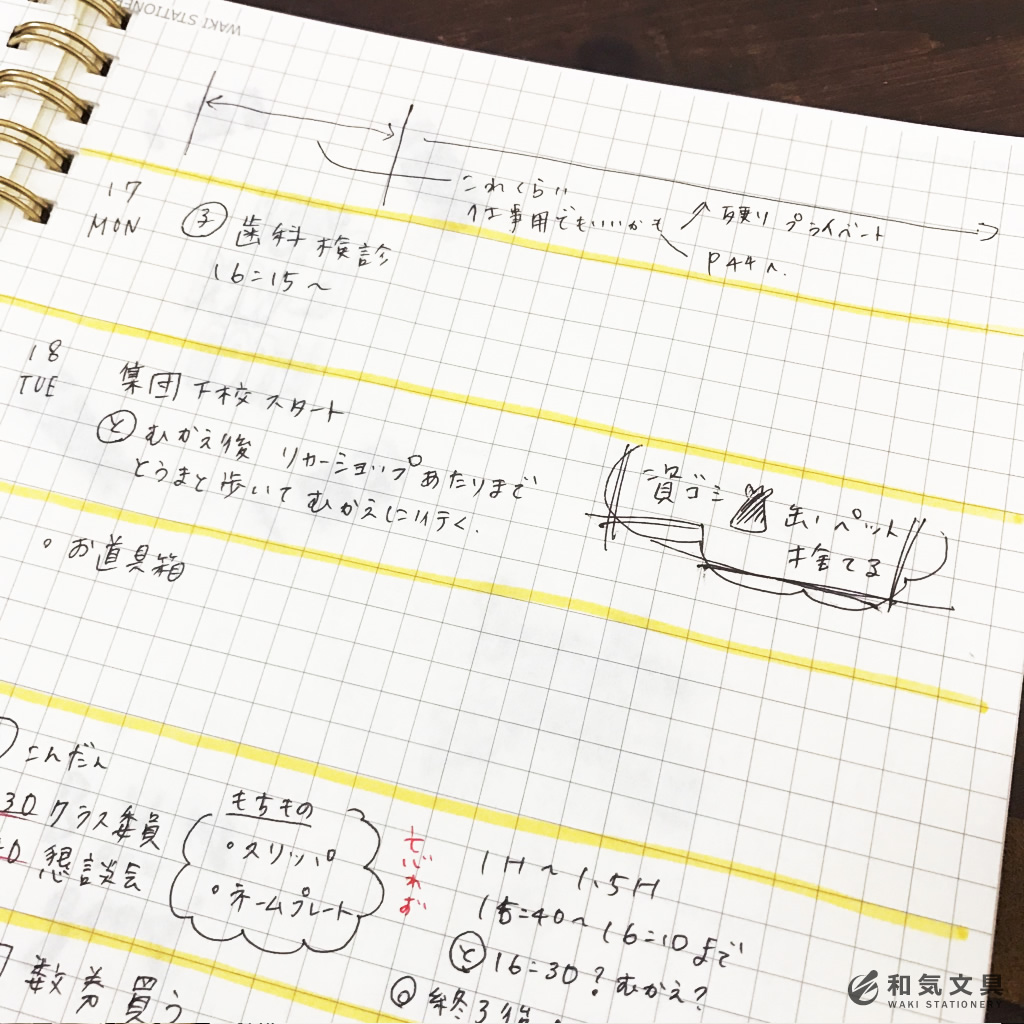 WAKI STATIONE
これくらい
仕事用でもいいかも
残り プライベート
P44へ.
17
MON
子 歯科検診
16:15〜
18
TUE
集団下校スタート
と むかえ後 リカーショップあたりまで
とうまと歩いてむかえに行く.
資ゴミ 缶、ペット
捨てる
・お道具箱
こんだん
30 クラス委員
懇談会
もちもの
・スリッパ
・ネームプレート
1H〜1.5H
15:40〜16:10まで
と 16:30?むかえ?
終了後
数券買う
和気文具
WAKI STATIONERY